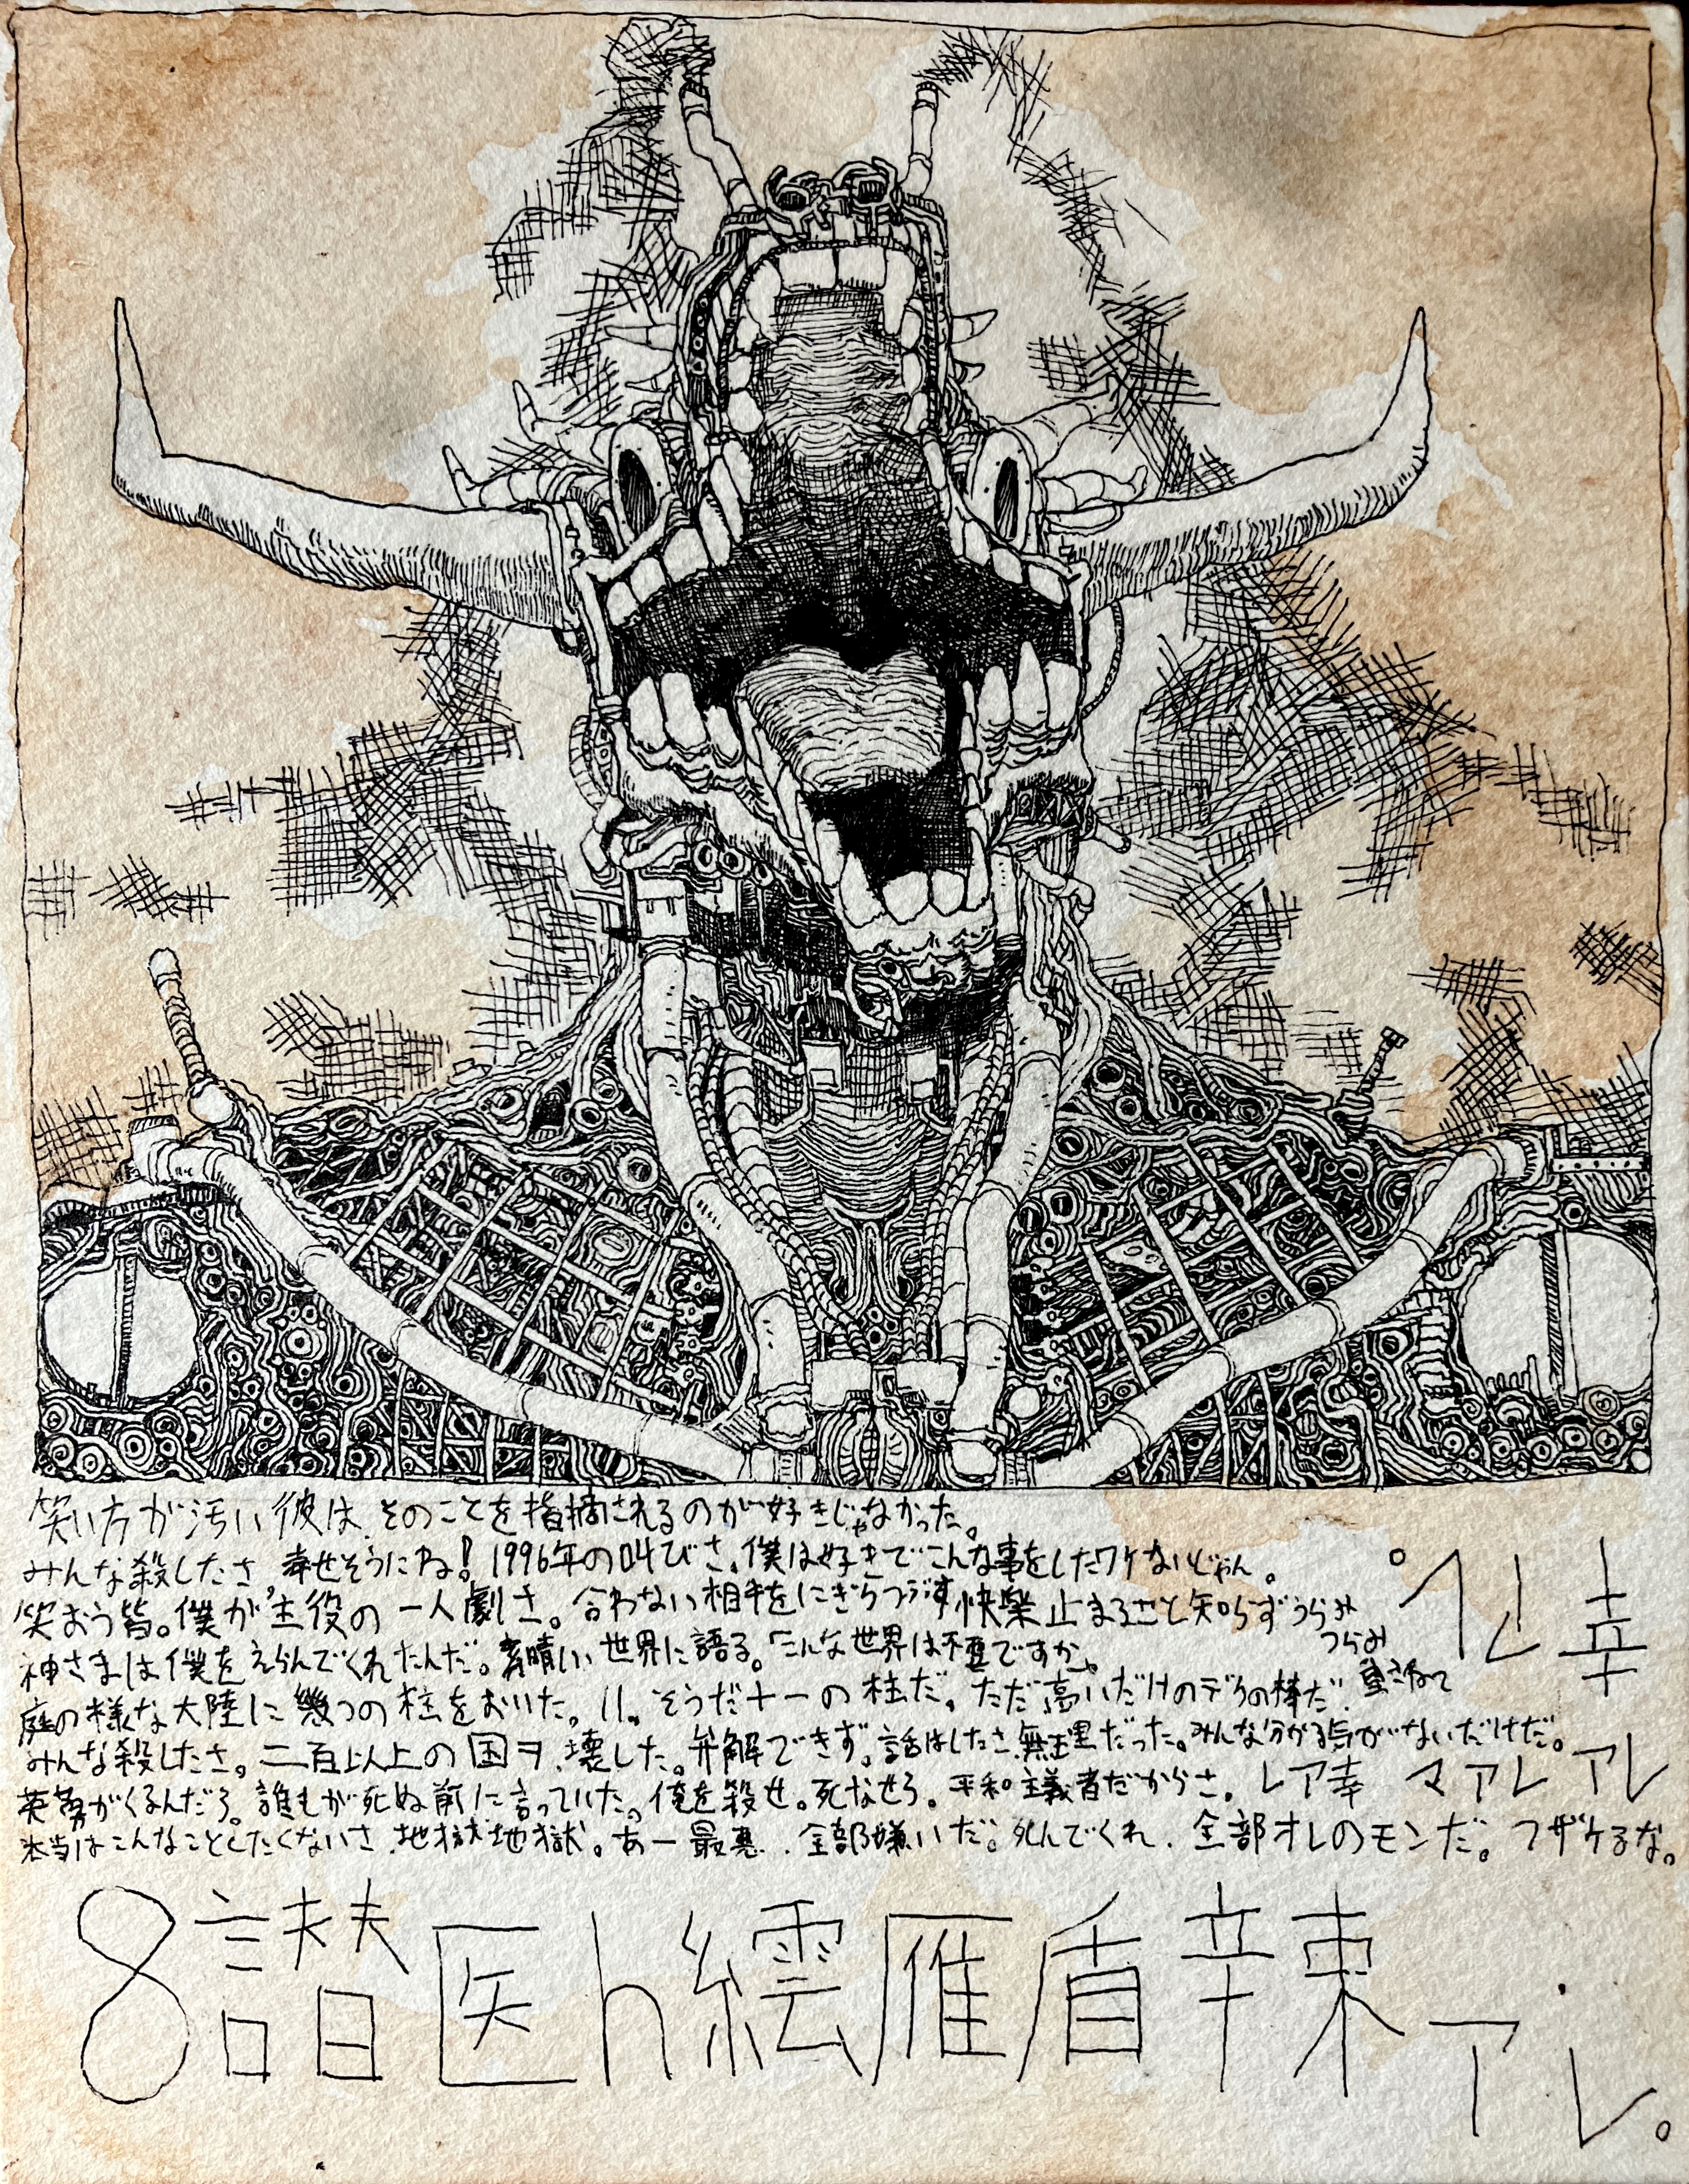 笑い方が汚い彼は、そのことを指摘されるのが好きじゃなかった。
みんな殺したさ、幸せそうにね!1996年の叫びさ。僕は好きでこんな事をしたワケないじゃん。
笑おう皆。僕が主役の一人劇さ。合わない相手をにぎらつぶす快楽止まることを知らずうらみ
つらみ
神さまは僕をえらんでくれたんだ。素晴しい世界に語る。「こんな世界は不要ですか。
庭の様な大陸に幾つの柱をおいた。11。そうだ十一の柱だ。ただ高いだけのデクの棒だ。
みんな殺したさ。二百以上の国ヲ、壊した。弁解できず。話はしたさ、無理だった。みんな分かる気がないだけだ。
英勇がくるんだろ。誰もが死ぬ前に言っていた。俺を殺せ。死なせろ。平和主義者だからさ。レア幸 マアレ アレ
本当はこんなことしたくないさ、地獄地獄。あー最悪、全部嫌いだ。死んでくれ、全部オレのモンだ。フザケるな。
幸
8譛医h繧雁盾辛辣
アレ。